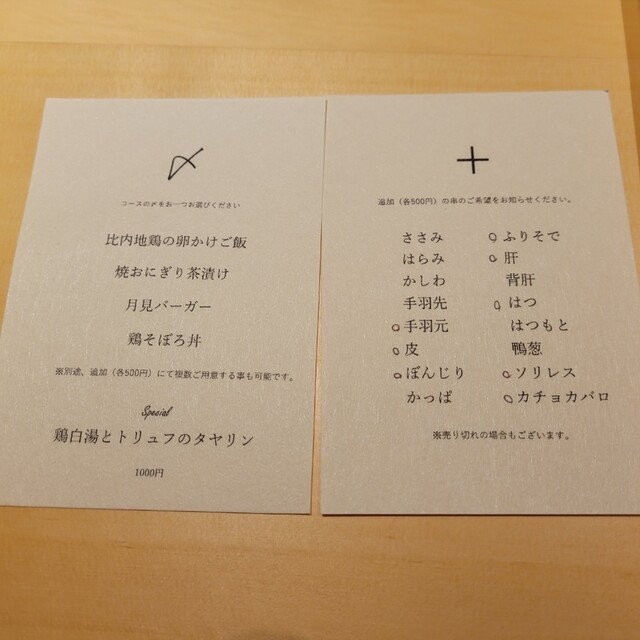 〆
コースの〆をお一つお選びください
比内地鶏の卵かけご飯
焼おにぎり茶漬け
月見バーガー
鶏そぼろ丼
※別途、追加（各500円）にて複数ご用意する事も可能です。
Special
鶏白湯とトリュフのタヤリン
1000円
＋
追加（各500円）の串のご希望をお知らせください。
ささみ ○ふりそで
はらみ ○肝
かしわ 背肝
手羽先 ○はつ
○手羽元 はつもと
○皮 鴨葱
○ぼんじり ○ソリレス
かっぱ ○カチョカバロ
※売り切れの場合もございます。